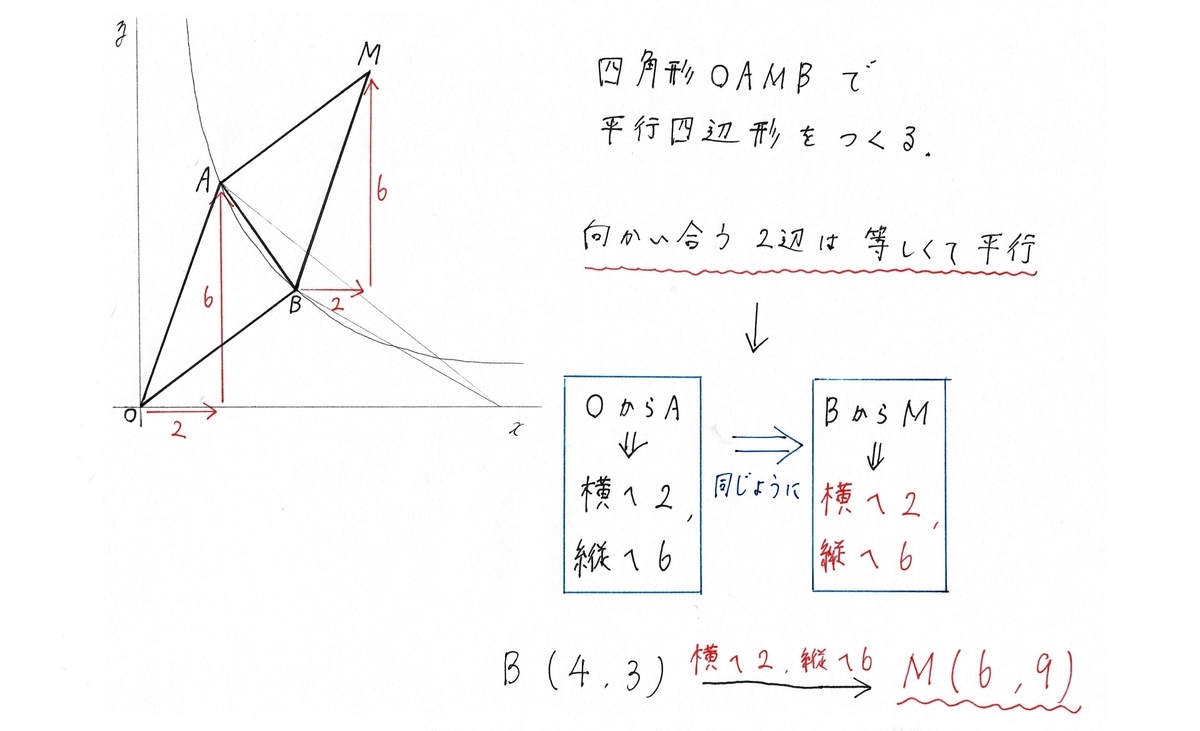 y
M
A
6
6
B
2
O
2
x
四角形OAMBで
平行四辺形をつくる.
向かい合う2辺は等しくて平行
OからA
横へ2,
縦へ6
同じように
BからM
横へ2,
縦へ6
B(4,3) 横へ2,縦へ6 M(6,9)